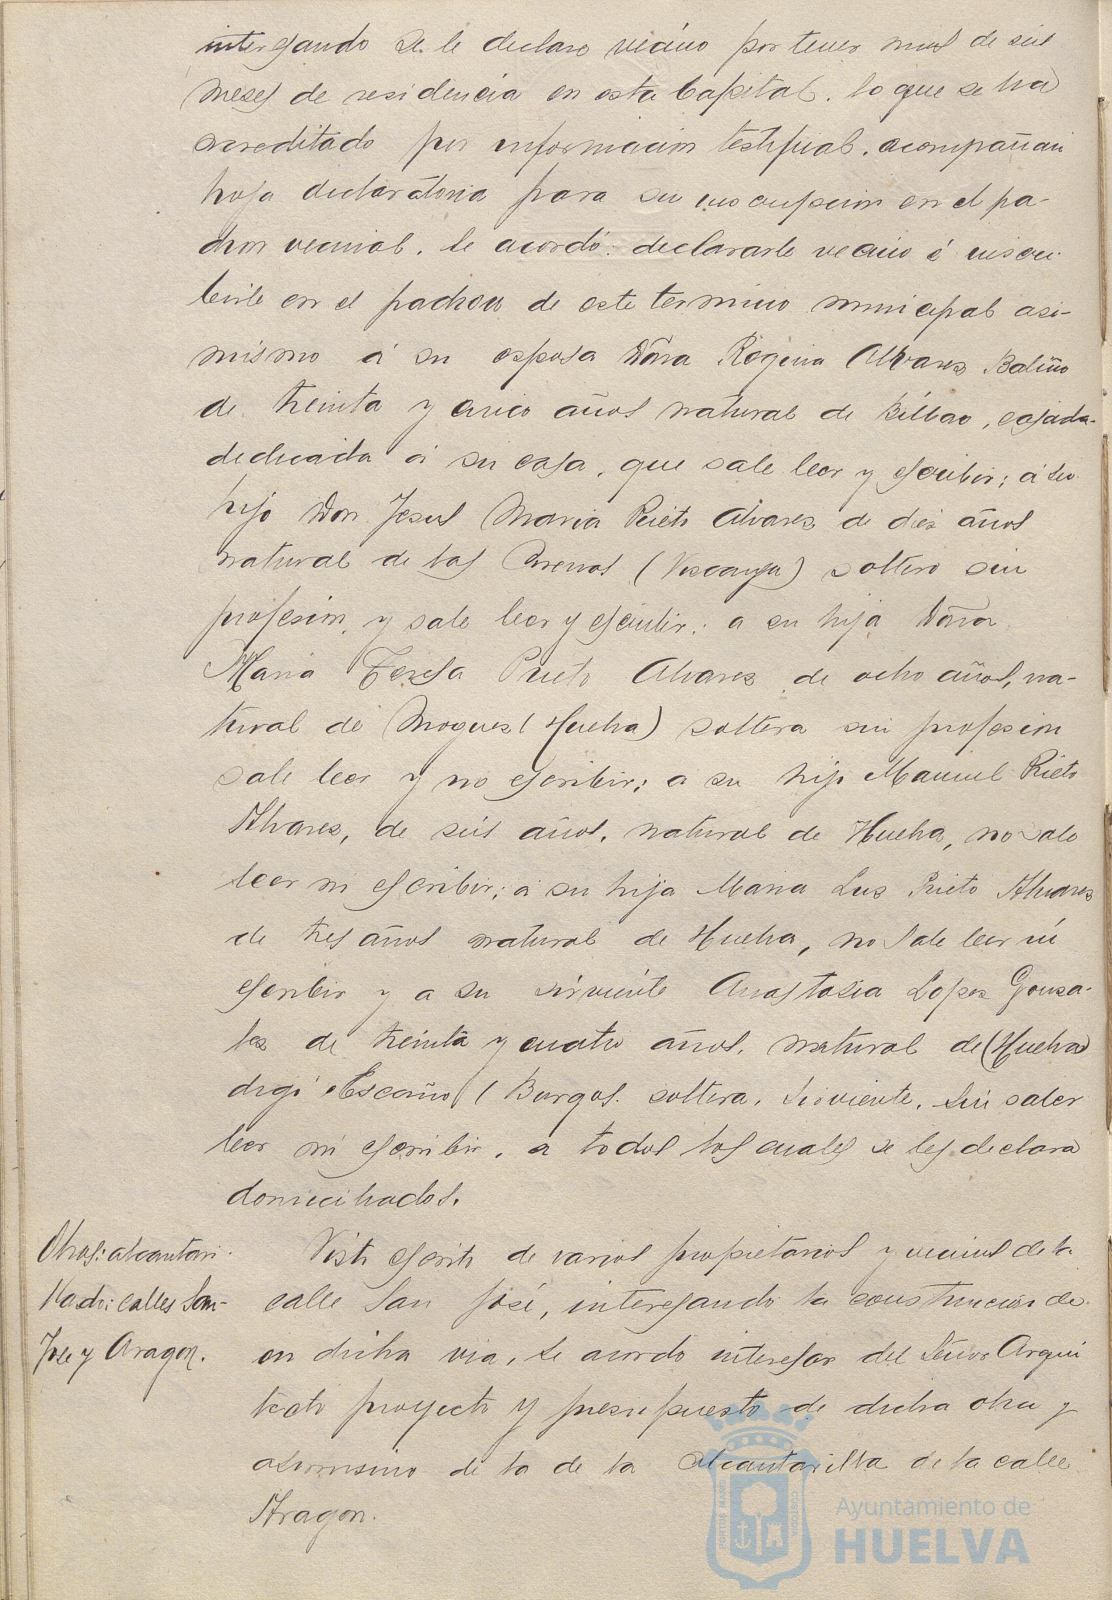 interesando se le declare vecino por tener mas de seis
meses de residencia en esta Capital. lo que se ha
acreditado por informacion testifical. acompañan
hoja declaratoria para su inscripcion en el pa-
dron vecinal. Se acordó: declararle vecino é inscri-
birle en el padron de este termino municipal asi-
mismo á su esposa Dña Regina Alvarez Baliño
de treinta y cinco años natural de Bilbao, casada
dedicada á su casa, que sabe leer y escribir; á su
hijo Don Jesus Maria Prieto Alvarez de diez años
natural de las Arenas (Vizcaya) soltero sin
profesion, y sabe leer y escribir; a su hija Dña
Maria Teresa Prieto Alvarez de ocho años, na-
tural de Moguer (Huelva) soltera sin profesion
sabe leer y no escribir; a su hijo Manuel Prieto
Alvarez, de seis años, natural de Huelva, no sabe
leer ni escribir; á su hija Maria Luz Prieto Alvarez
de tres años natural de Huelva, no sabe leer ni
escribir y a su sirviente Anastasia Lopez Gonza-
lez de treinta y cuatro años, natural de (Huelva)
digo Escaño (Burgos. soltera, sirviente, sin saber
leer ni escribir, a todos los cuales se les declara
domiciliados.
Obras: alcantari-
llado: calles San
Jose y Aragon.
Visto escrito de varios propietarios y vecinos de la
calle San José, interesando la construccion de
en dicha via, se acordo interesar del Señor Arqui
tecto proyecto y presupuesto de dicha obra y
asimismo de la de la alcantarilla de la calle
Aragon.
PORTUS MARIS
CUSTODIA
Ayuntamiento de
HUELVA